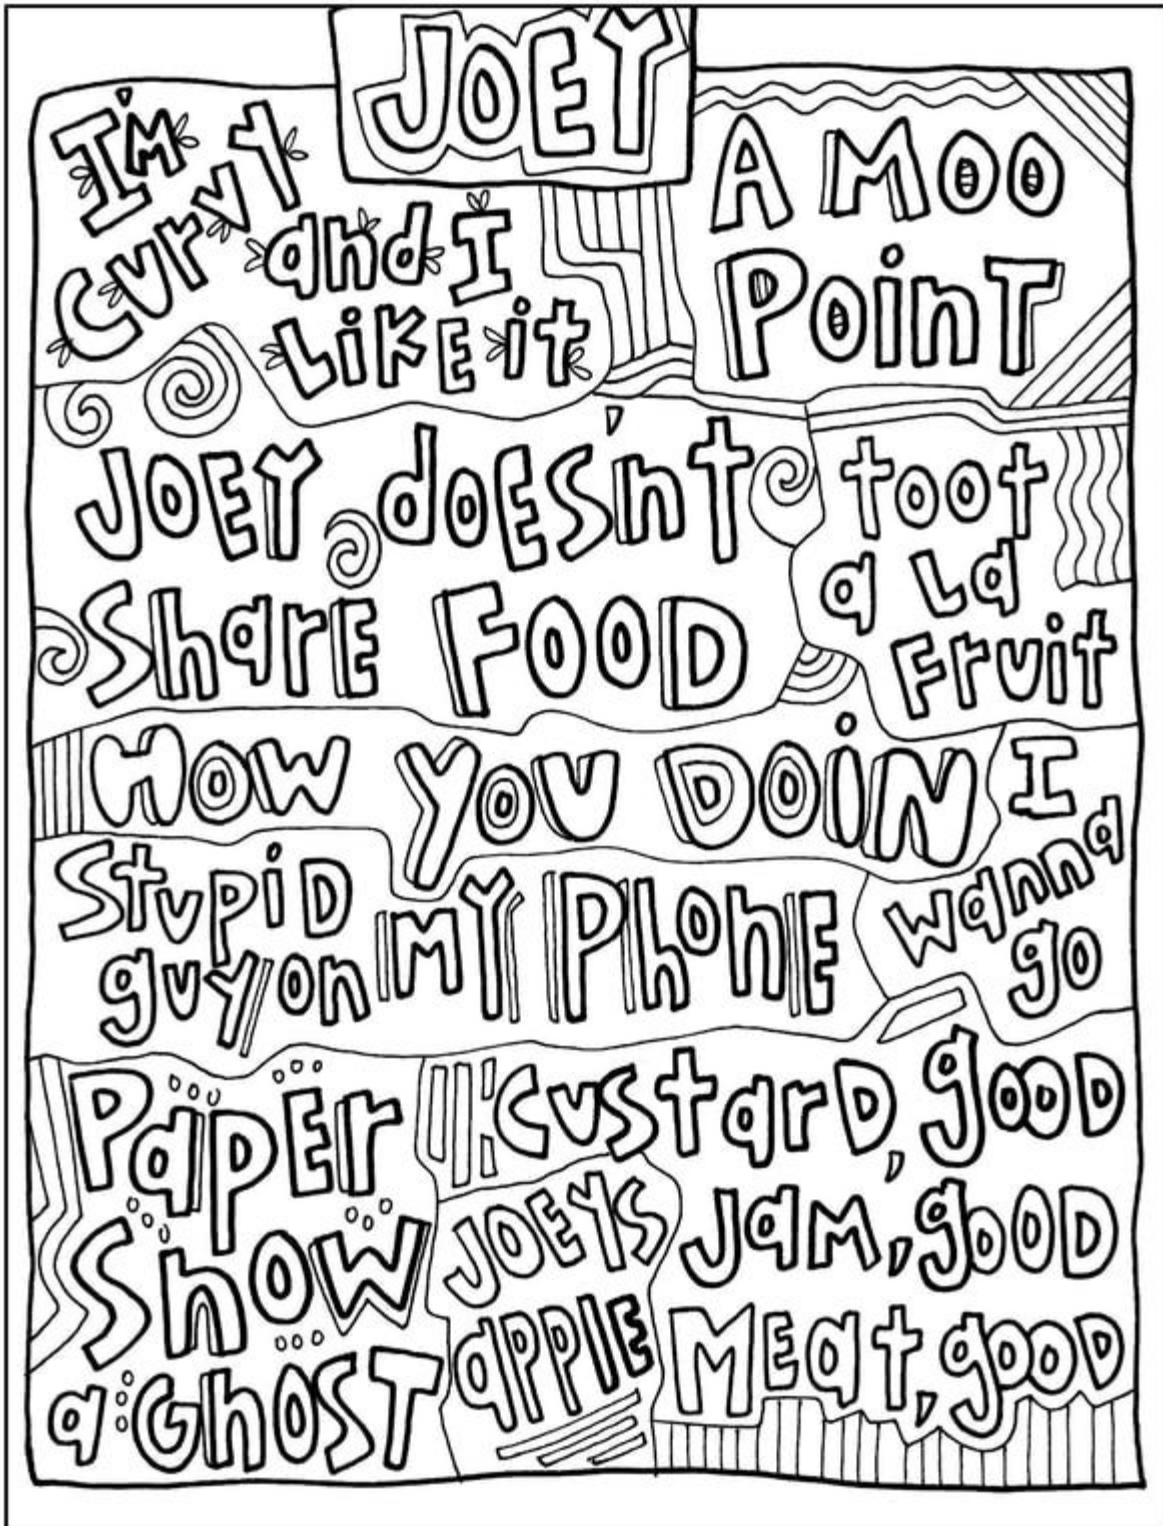 JOEY
I'M
CurvY
and I
LiKE it
A MOO
PoinT
JOEY doES'nt
SharE FOOD
toot
a La
Fruit
How You DOiN
I
wanna
go
StupiD
guy on MY PhonE
PapEr
Snow
a GhOST
CuStarD, gooD
Jam, gooD
MEat, gooD
JOEYS
aPPlE